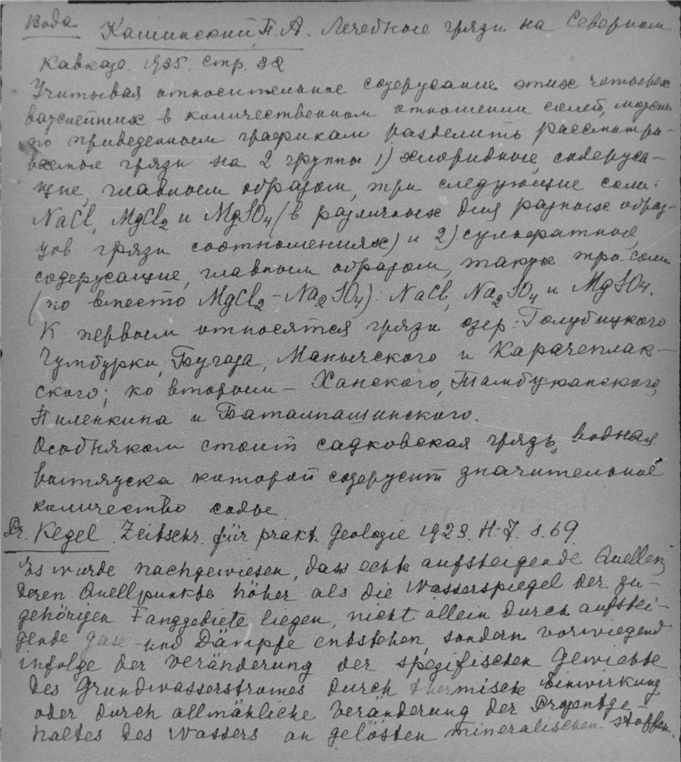 Вода Кашинский П. А. Лечебные грязи на Северном
Кавказе. 1925. стр. 32
Учитывая относительное содержание этих четырех
важнейших в количественном отношении солей, можно
по приведенным графикам разделить рассматри-
ваемые грязи на 2 группы 1) хлоридные, содержа-
щие, главным образом, три следующие соли:
NaCl, MgCl2 и MgSO4 (в различных для разных образ-
цов грязи соотношениях) и 2) сульфатные,
содержащие, главным образом, также три соли
(но вместо MgCl2 - Na2SO4): NaCl, Na2SO4 и MgSO4.
К первым относятся грязи озер: Голубицкого
Чумбурки, Бугаза, Манычского и Карачеплак-
ского; ко вторым - Ханского, Тамбуканского,
Пиленкина и Баталпашинского.
Особняком стоит садковская грязь, водная
вытяжка которой содержит значительное
количество соды
Dr. Kegel. Zeitschr. für prakt. Geologie 1923. H. 7. S. 69.
Es wurde nachgewiesen, dass echte aufsteigende Quellen,
deren Quellpunkte höher als die Wasserspiegel der zu-
gehörigen Fanggebiete liegen, nicht allein durch aufstei-
gende Gase- und Dämpfe entstehen, sondern vorwiegend
infolge der Veränderung der spezifischen Gewichte
des Grundwasserstromes durch thermische Einwirkung
oder durch allmähliche Veränderung der Prozentge-
haltes des Wassers an gelösten mineralischen Stoffen.